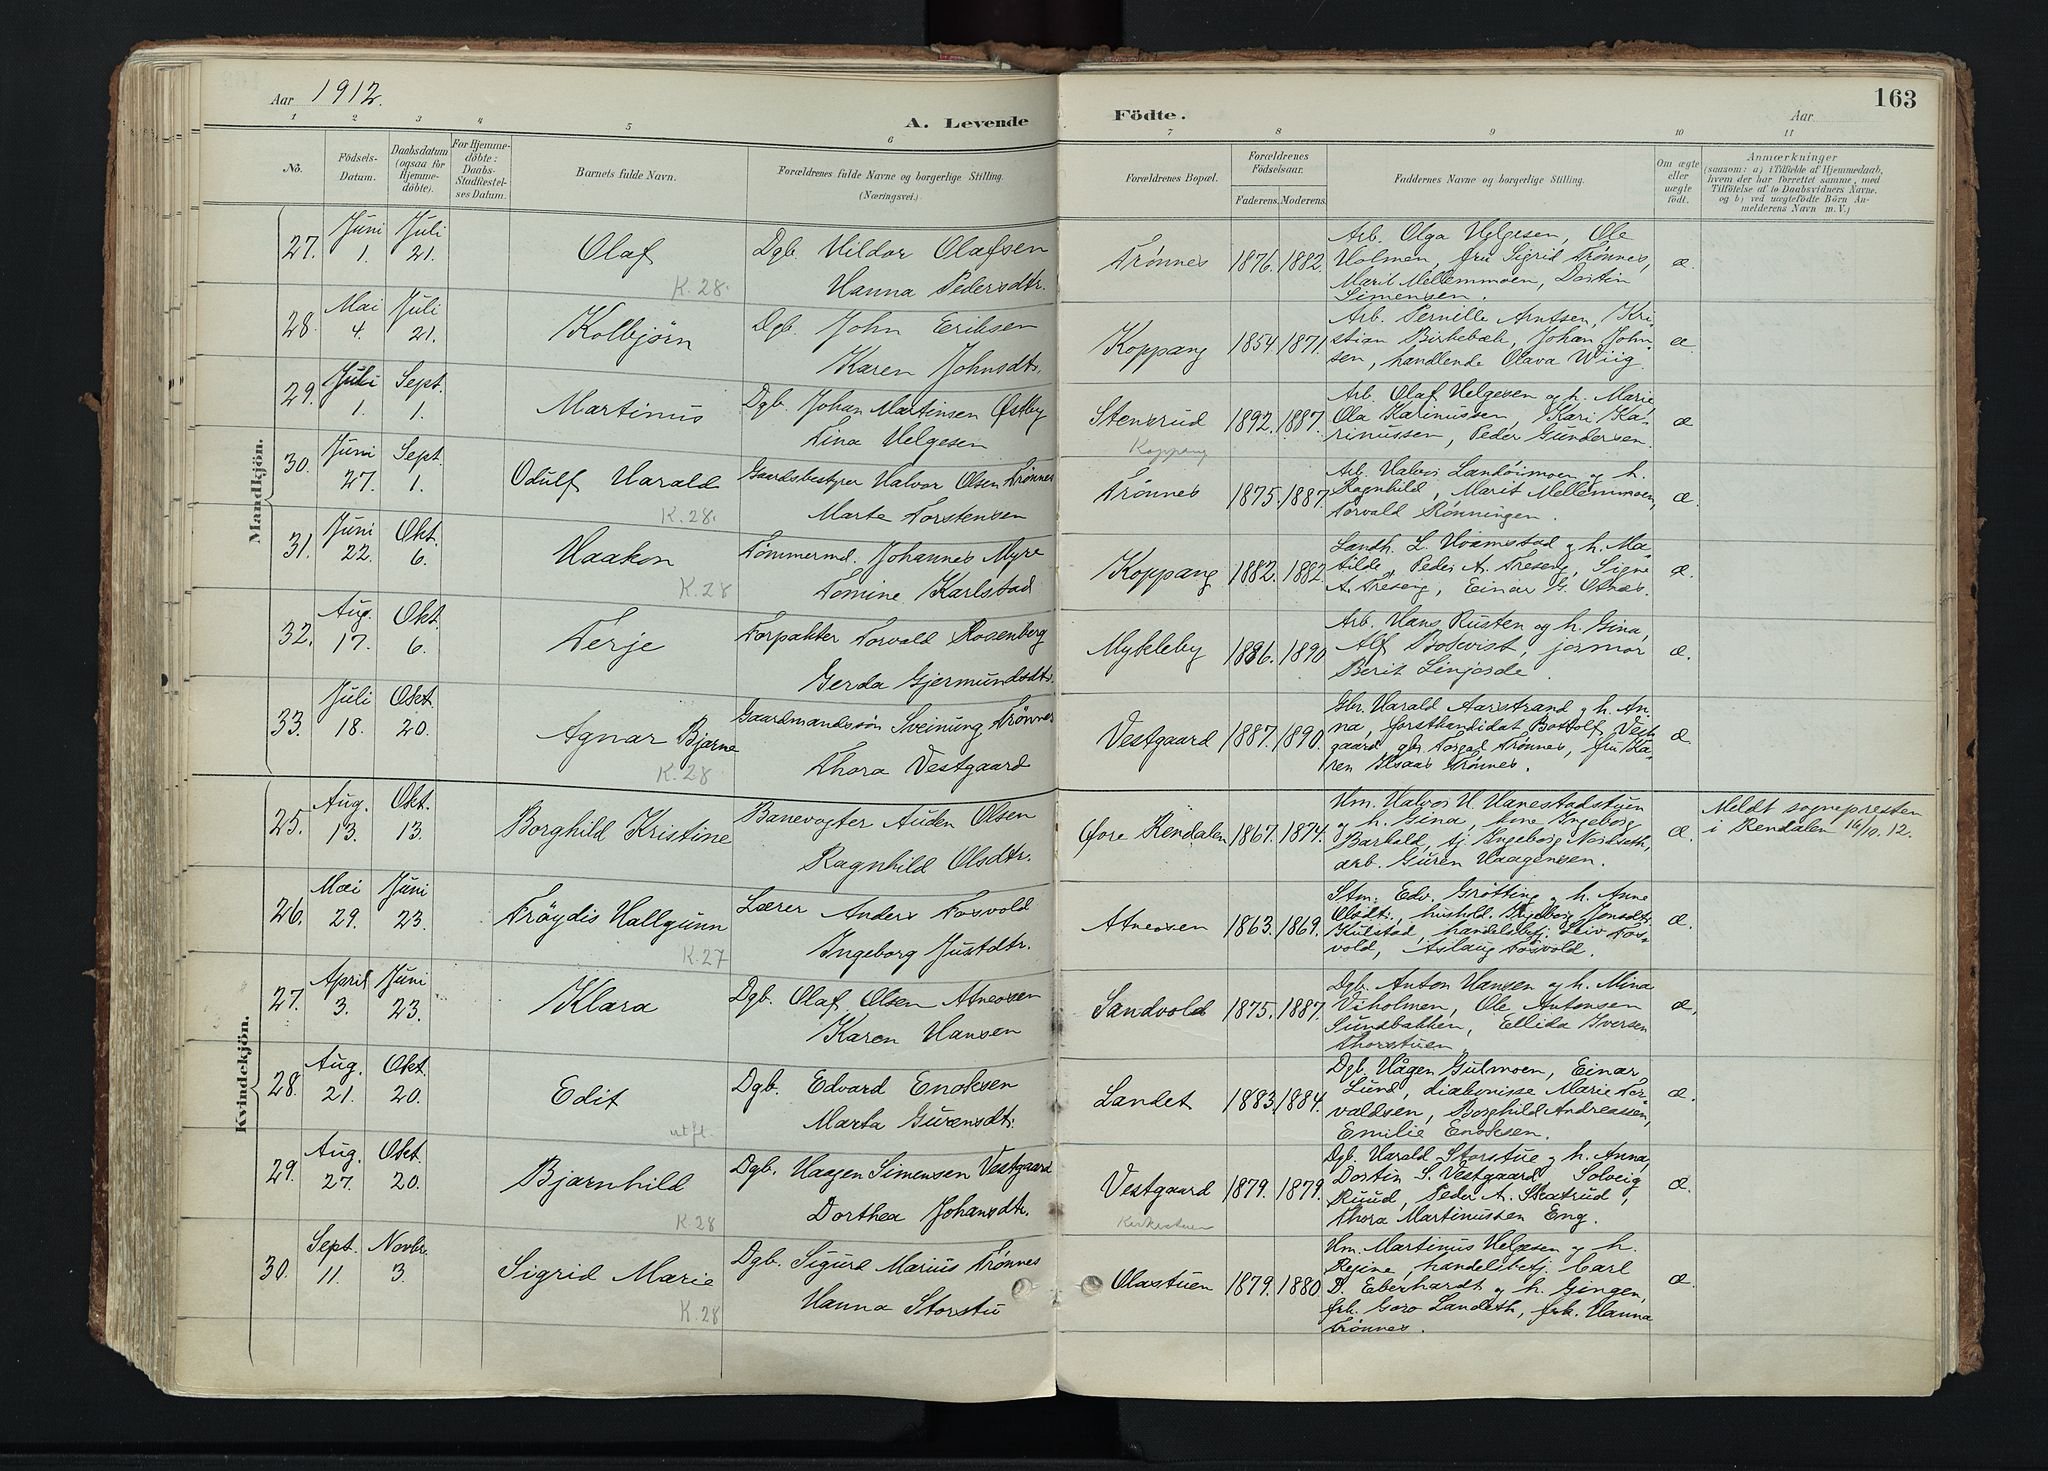 Aar 1912.
A. Levende
Födte.
Aar
163
1 2 3 4 5 6 7 8 9 10 11
No.
Födsels-Datum.
Daabsdatum (ogsaa for Hjemmedöbte).
For Hjemmedöbte: Daabs-Stadfæstelses Datum.
Barnets fulde Navn.
Forældrenes fulde Navne og borgerlige Stilling. (Næringsvei.)
Forældrenes Bopæl.
Forældrenes Födselsaar.
Faderens. Moderens.
Faddernes Navne og borgerlige Stilling.
Om ægte eller uægte födt.
Anmærkninger
(saasom: a) i Tilfælde af Hjemmedaab, hvem der har forrettet samme, med Tilföielse af to Daabsvidners Navne, og b) ved uægtefödte Börn Anmelderens Navn m. V.)
Mandkjön.
27. Juni 1. Juli 21. Olaf K.28.
Dgb. Hildor Olafsen
Hanna Pedersdtr.
Trønnes 1876. 1882.
Arb. Olga Helgesen, Ole
Holmen, fru Sigrid Trønnes,
Marit Mellemmoen, Dortin
Simensen.
æ.
28. Mai 4. Juli 21. Kolbjørn
Dgb. John Eriksen
Karen Johnsdtr.
Koppang 1854. 1871.
Arb. Pernille Arntsen, Kri-
stian Birkebæk, Johan John-
sen, handlende Olava Wiig.
æ.
29. Juli 1. Sept. 1. Martinus
Dgb. Johan Martinsen Østby
Tina Helgesen
Stensrud 1892. 1887.
Koppang
Arb. Olaf Helgesen og h. Marie
Ola Karinussen, Kari Ka-
rinussen, Peder Gundersen.
æ
30. Juni 27. Sept. 1. Odulf Harald K.28.
Gaardsbestyrer Halvor Olsen Trønnes
Marte Torstensen
Trønnes 1875. 1887.
Arb. Halvor Landöimoen og h.
Ragnhild, Marit Mellemmoen,
Torvald Rønningen.
æ.
31. Juni 22. Okt. 6. Haakon K.28
Tømmermd. Johannes Myre
Tomine Karlstad
Koppang 1882. 1882
Landh. L. Hvamstad og h. Ma-
tilde, Peder A. Treseng, Signe
A. Treseng, Einar G. Otnes.
æ.
32. Aug. 17. Okt. 6. Terje
Forpakter Torvald Rosenberg
Gerda Gjermundsdtr.
Mykleby 1886. 1890
Arb. Hans Rusten og h. Gina,
Alf Bokvist, jormor
Berit Linjorde.
æ.
33. Juli 18. Okt. 20. Agnar Bjarne K.28
Gaardmandssøn Sveinung Trønnes
Thora Vestgaard
Vestgaard 1887. 1890.
Gbr. Harald Aarstrand og h. An-
na, forstkandidat Bottolf Vest-
gaard, gbr. Torgal Trønnes, fru Ka-
ren Isaas Trønnes.
æ.
Kvindekjön.
25. Aug. 13. Okt. 13. Borghild Kristine
Banevogter Auden Olsen
Ragnhild Olsdtr.
Øvre Rendalen 1867. 1874.
Hm. Halvor H. Hanestadstuen
og h. Gina, kone Ingeborg
Barkald, tj. Ingeborg Nordseth,
arb. Guren Haagensen.
æ.
Meldt sognepresten
i Rendalen 16/10. 12.
26. Mai 29. Juni 23. Frøydis Hallgunn K.27
Lærer Anders Fosvold
Ingeborg Justdtr.
Atneosen 1863. 1869.
Stm. Edv. Grøtting og h. Anne
Olsdtr., hushold. Ingeborg Jonsdtr.
Kulstad, handelsbetj. Liv Fos-
vold, Aslaug Fosvold.
æ.
27. April 3. Juni 23. Klara
Dgb. Olaf Olsen Atneosen
Karen Hansen
Sandvold 1875. 1887.
Dgb. Anton Hansen og h. Mina
Viholmen, Ole Antonsen
Sundbakken, Ellida Iversen
Thorstuen
æ.
28. Aug. 21. Okt. 20. Edit utfl.
Dgb. Edvard Enoksen
Marta Gurensdtr.
Landet 1883. 1884.
Dgb. Hågen Gulmoen, Einar
Lund, diakonisse Marie Tor-
valdsen, Borghild Andreassen,
Emilie Enoksen.
æ.
29. Aug. 27. Okt. 20. Bjarnhild K.28
Dgb. Haagen Simensen Vestgaard
Dorthea Johansdtr.
Vestgaard 1879. 1879.
Kirkestuen
Dgb. Harald Storstue og h. Anna,
Dortin S. Vestgaard, Solveig
Ruud, Peder A. Skatrud,
Thora Martinussen Eng.
æ.
30. Sept. 11. Novbr. 3. Sigrid Marie K.28
Dgb. Sigurd Marius Trønnes
Hanna Storstu
Olastuen 1879. 1880.
Hm. Martinus Helgesen og h.
Regine, handelsbetj. Carl
D. Eberhardt og h. Gingen,
frk. Goro Landeth, frk. Hanna
Trønnes.
æ.